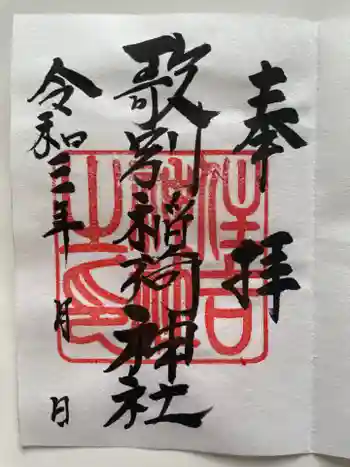 奉拝
歌別稲荷神社
令和三年 月 日